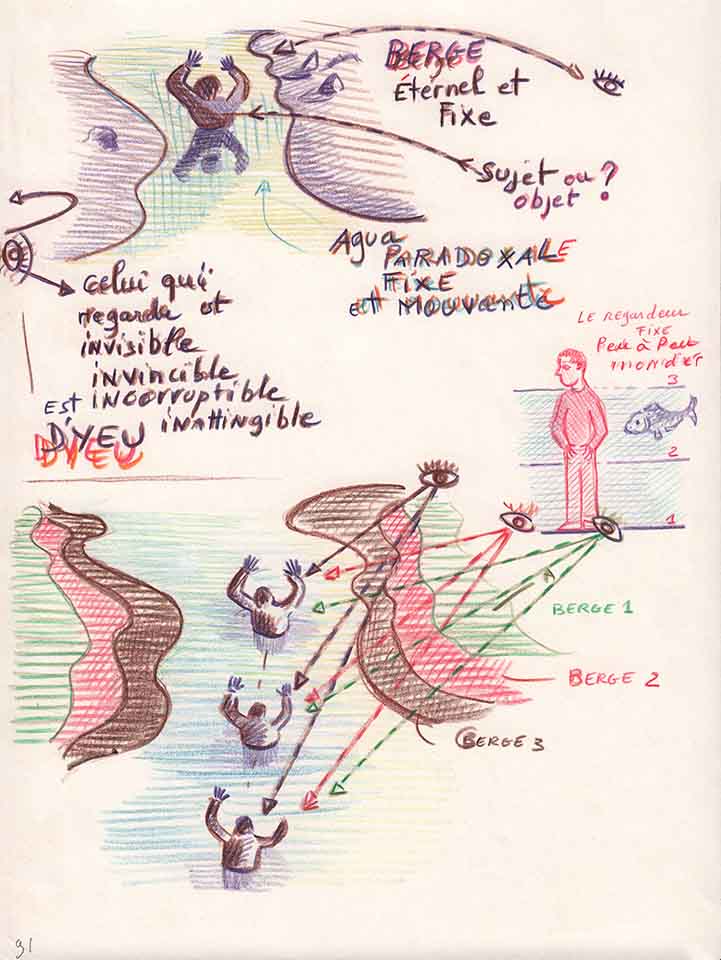 BERGE
Éternel et
Fixe
Sujet ou
objet ?
Agua
PARADOXALE
FIXE
et MOUVANTE
celui qui
regarde est
invisible
invincible
Est incorruptible
inattingible
D'YEU
D'YEU
LE REGARDEUR
FIXE
Peu à Peu
3
2
1
BERGE 1
BERGE 2
BERGE 3
91